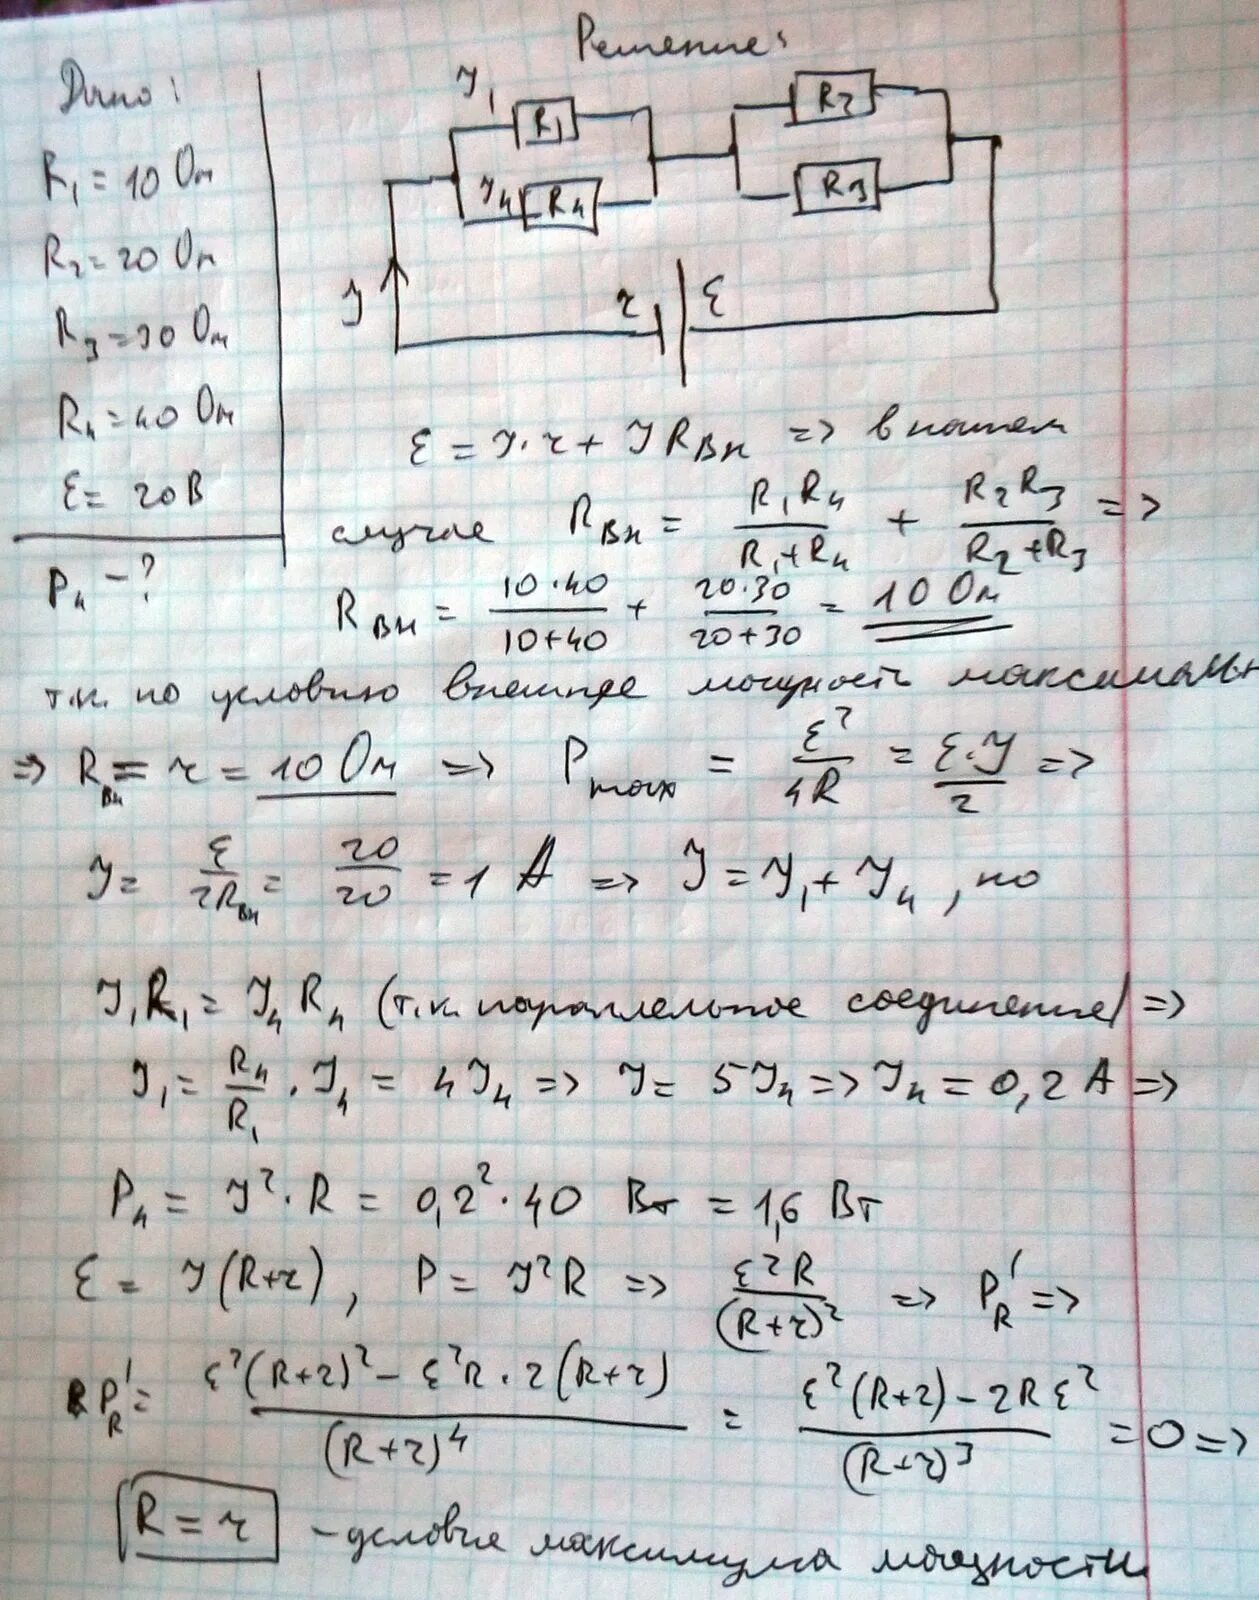 Решение:
Дано:
R₁ = 10 Ом
R₂ = 20 Ом
R₃ = 30 Ом
R₄ = 40 Ом
ℰ = 20 В
P₄ - ?
J₁
R₁
J₄
R₄
R₂
R₃
J
r
ℰ
ℰ = J·r + J Rвн => в нашем
случае Rвн = R₁R₄/(R₁+R₄) + R₂R₃/(R₂+R₃) =>
Rвн = 10·40/(10+40) + 20·30/(20+30) = 10 Ом
т.к. по условию внешнее мощность максимальн
=> Rвн = r = 10 Ом => Pmax = ℰ²/4R = ℰ·J/2 =>
J = ℰ/2Rвн = 20/20 = 1 А => J = J₁ + J₄, но
J₁R₁ = J₄R₄ (т.к. параллельное соединение) =>
J₁ = R₄/R₁ · J₄ = 4J₄ => J = 5J₄ => J₄ = 0,2 А =>
P₄ = J²·R = 0,2²·40 Вт = 1,6 Вт
ℰ = J(R+r), P = J²R => ℰ²R/(R+r)² => P'R =>
P'R = (ℰ²(R+r)² - ℰ²R·2(R+r))/(R+r)⁴ = (ℰ²(R+r) - 2Rℰ²)/(R+r)³ = 0 =>
R = r - условие максимума мощности